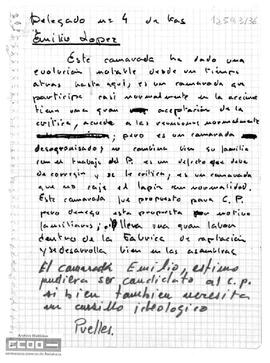 Delegado nº 4 de las
Emilio Lopez
12593/36
Este camarada ha dado una
evolucion notable desde un tiempo
atras hasta aqui, es un camarada que
participa casi normalmente en la accion
tiene una gran aceptación de la
critica, acude a las reuniones normalmente
pero es un camarada
desorganizado, no combina bien su familia
con el trabajo del P. es un defecto que debe
de corregir y se le critica, es un camarada
que no coje el lapiz con normalidad. Este
camarada fue propuesto para C.P.
pero denego esta propuesta por motivos
familiares, lleva una gran labor
dentro de la Fabrica de captación
y se desarrolla bien en las asambleas
El camarada Emilio, estimo
pudiera ser candidato al C.P.
si bien tambien necesita
un cursillo ideologico
Puelles.
Archivo Histórico
CCOO